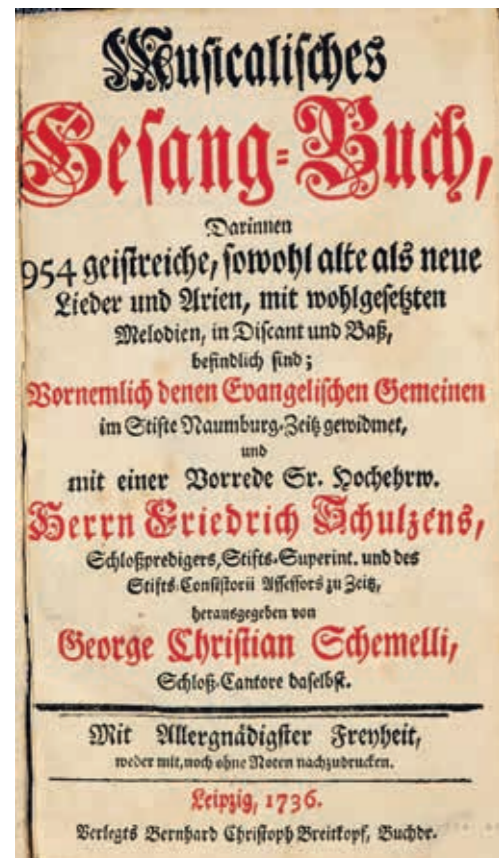 Musicalisches
Gesang-Buch,
Darinnen
954 geistreiche, sowohl alte als neue
Lieder und Arien, mit wohlgesetzten
Melodien, in Discant und Baß,
befindlich sind;
Vornemlich denen Evangelischen Gemeinen
im Stifte Naumburg-Zeitz gewidmet,
und
mit einer Vorrede Sr. Hochehrw.
Herrn Friedrich Schulzens,
Schloßpredigers, Stifts-Superint. und des
Stifts-Consistorii Assessors zu Zeitz,
herausgegeben von
George Christian Schemelli,
Schloß-Cantore daselbst.
Mit Allergnädigster Freyheit,
weder mit, noch ohne Noten nachzudrucken.
Leipzig, 1736.
Verlegts Bernhard Christoph Breitkopf, Buchdr.